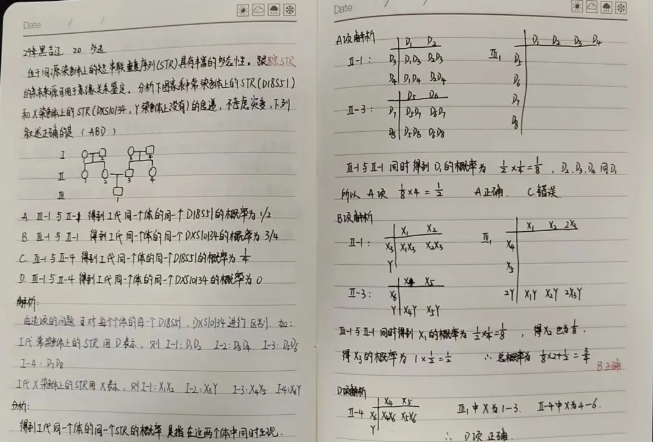 Date
24年黑吉辽 20 多选
位于同源染色体上的短串联重复序列(STR)具有丰富的多态性。跟踪STR
的亲本来源可用于亲缘关系鉴定。分析下图家系中常染色体上的STR(D18S51)
和X染色体上的STR(DXS10134,Y染色体上没有)的传递,不考虑突变,下列
叙述正确的是 (ABD)
I
II
III
1 2 3 4
1
A. III-1与II-1 得到I代同一个体的同一个D18S51的概率为1/2
B. III-1与II-1 得到I代同一个体的同一个DXS10134的概率为3/4
C. III-1与II-4 得到I代同一个体的同一个D18S51的概率为1/4
D. III-1与II-4 得到I代同一个体的同一个DXS10134的概率为0
解析:
对每个个体的每一个D18S51,DXS10134进行区别 如:
I代常染色体上的STR用D表示,则 I-1:D1D2 I-2:D3D4 I-3:D5D6
I-4:D7D8
I代X染色体上的STR用X表示,则I-1:X1X2 I-2:X3Y I-3:X4X5 I-4:X6Y
分析:
得到I代同一个体的同一个STR的概率 是指在这两个体中同时出现.
Date
A项解析
D1 D2
II-1: D3 D1D3 D2D3
D4 D1D4 D2D4
D5 D6
II-3: D7 D5D7 D6D7
D8 D5D8 D6D8
III1 D1 D2 D3 D4
D5
D6
D7
D8
III-1与II-1 同时得到D1的概率为 1/2×1/4=1/8 , D2.D3.D4同D1
所以 A项 1/8×4=1/2 A正确. C错误.
B项解析
X1 X2
II-1: X3 X1X3 X2X3
Y
X4 X5
II-3: X6
Y X4Y X5Y
III1 X1 X2 2X3
X4
X5
2Y X1Y X2Y 2X3Y
III-1与II-1 同时得到X1的概率为 1/2×1/4=1/8 , 得X2也为1/8.
得X3的概率为 1×1/2=1/2 ∴总概率为 1/8×2+1/2=3/4
B正确
D项解析
X4 X5
II-4 X6 X4X6 X5X6
Y
III1中X为1-3. II-4中X为4-6.
∴ D项 正确.